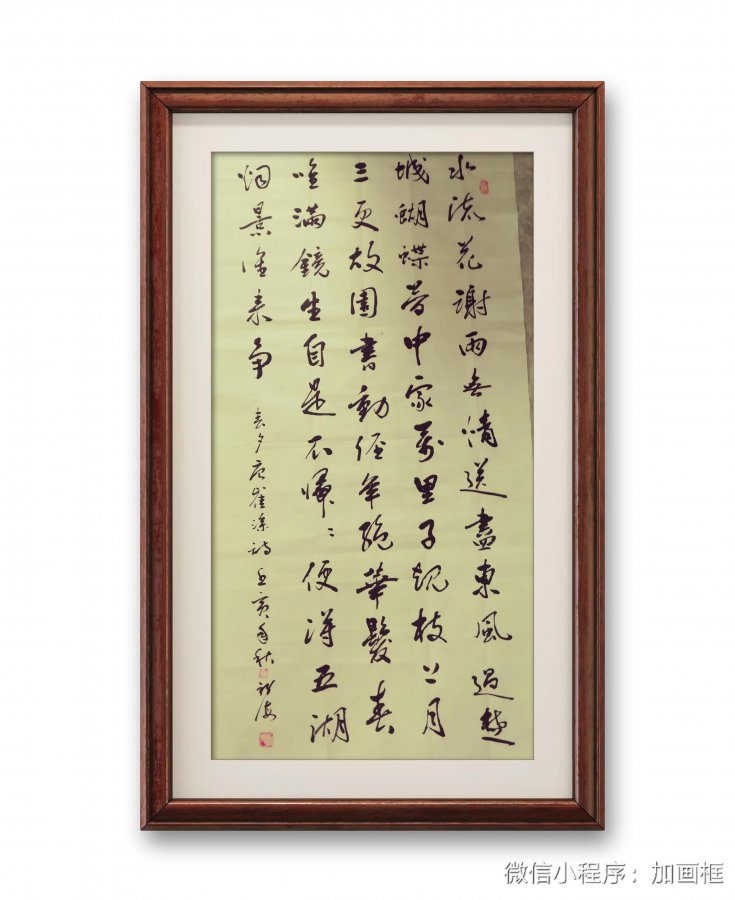 水流花謝兩無情送盡東風過楚
城蝴蝶夢中家萬里子規枝上月
三更故園書動經年絕華髮春
唯滿鏡生自是不歸〻便得五湖
烟景誰来爭
春夕唐崔塗詩己亥年秋
微信小程序：加画框